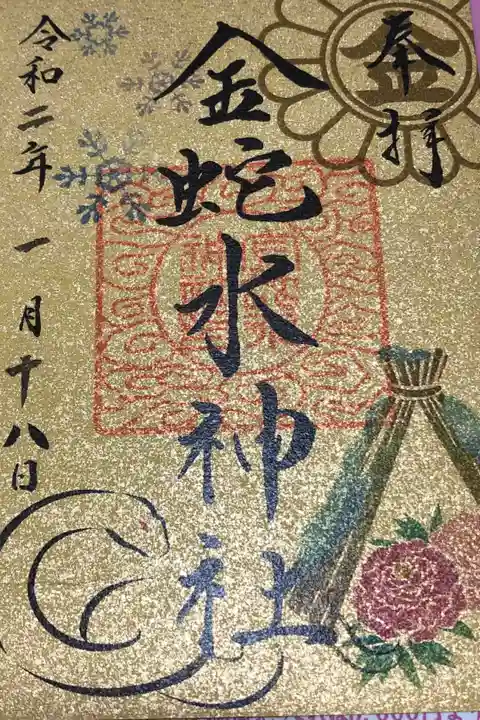 奉拝
金
金蛇水神社
令和二年 一月十八日